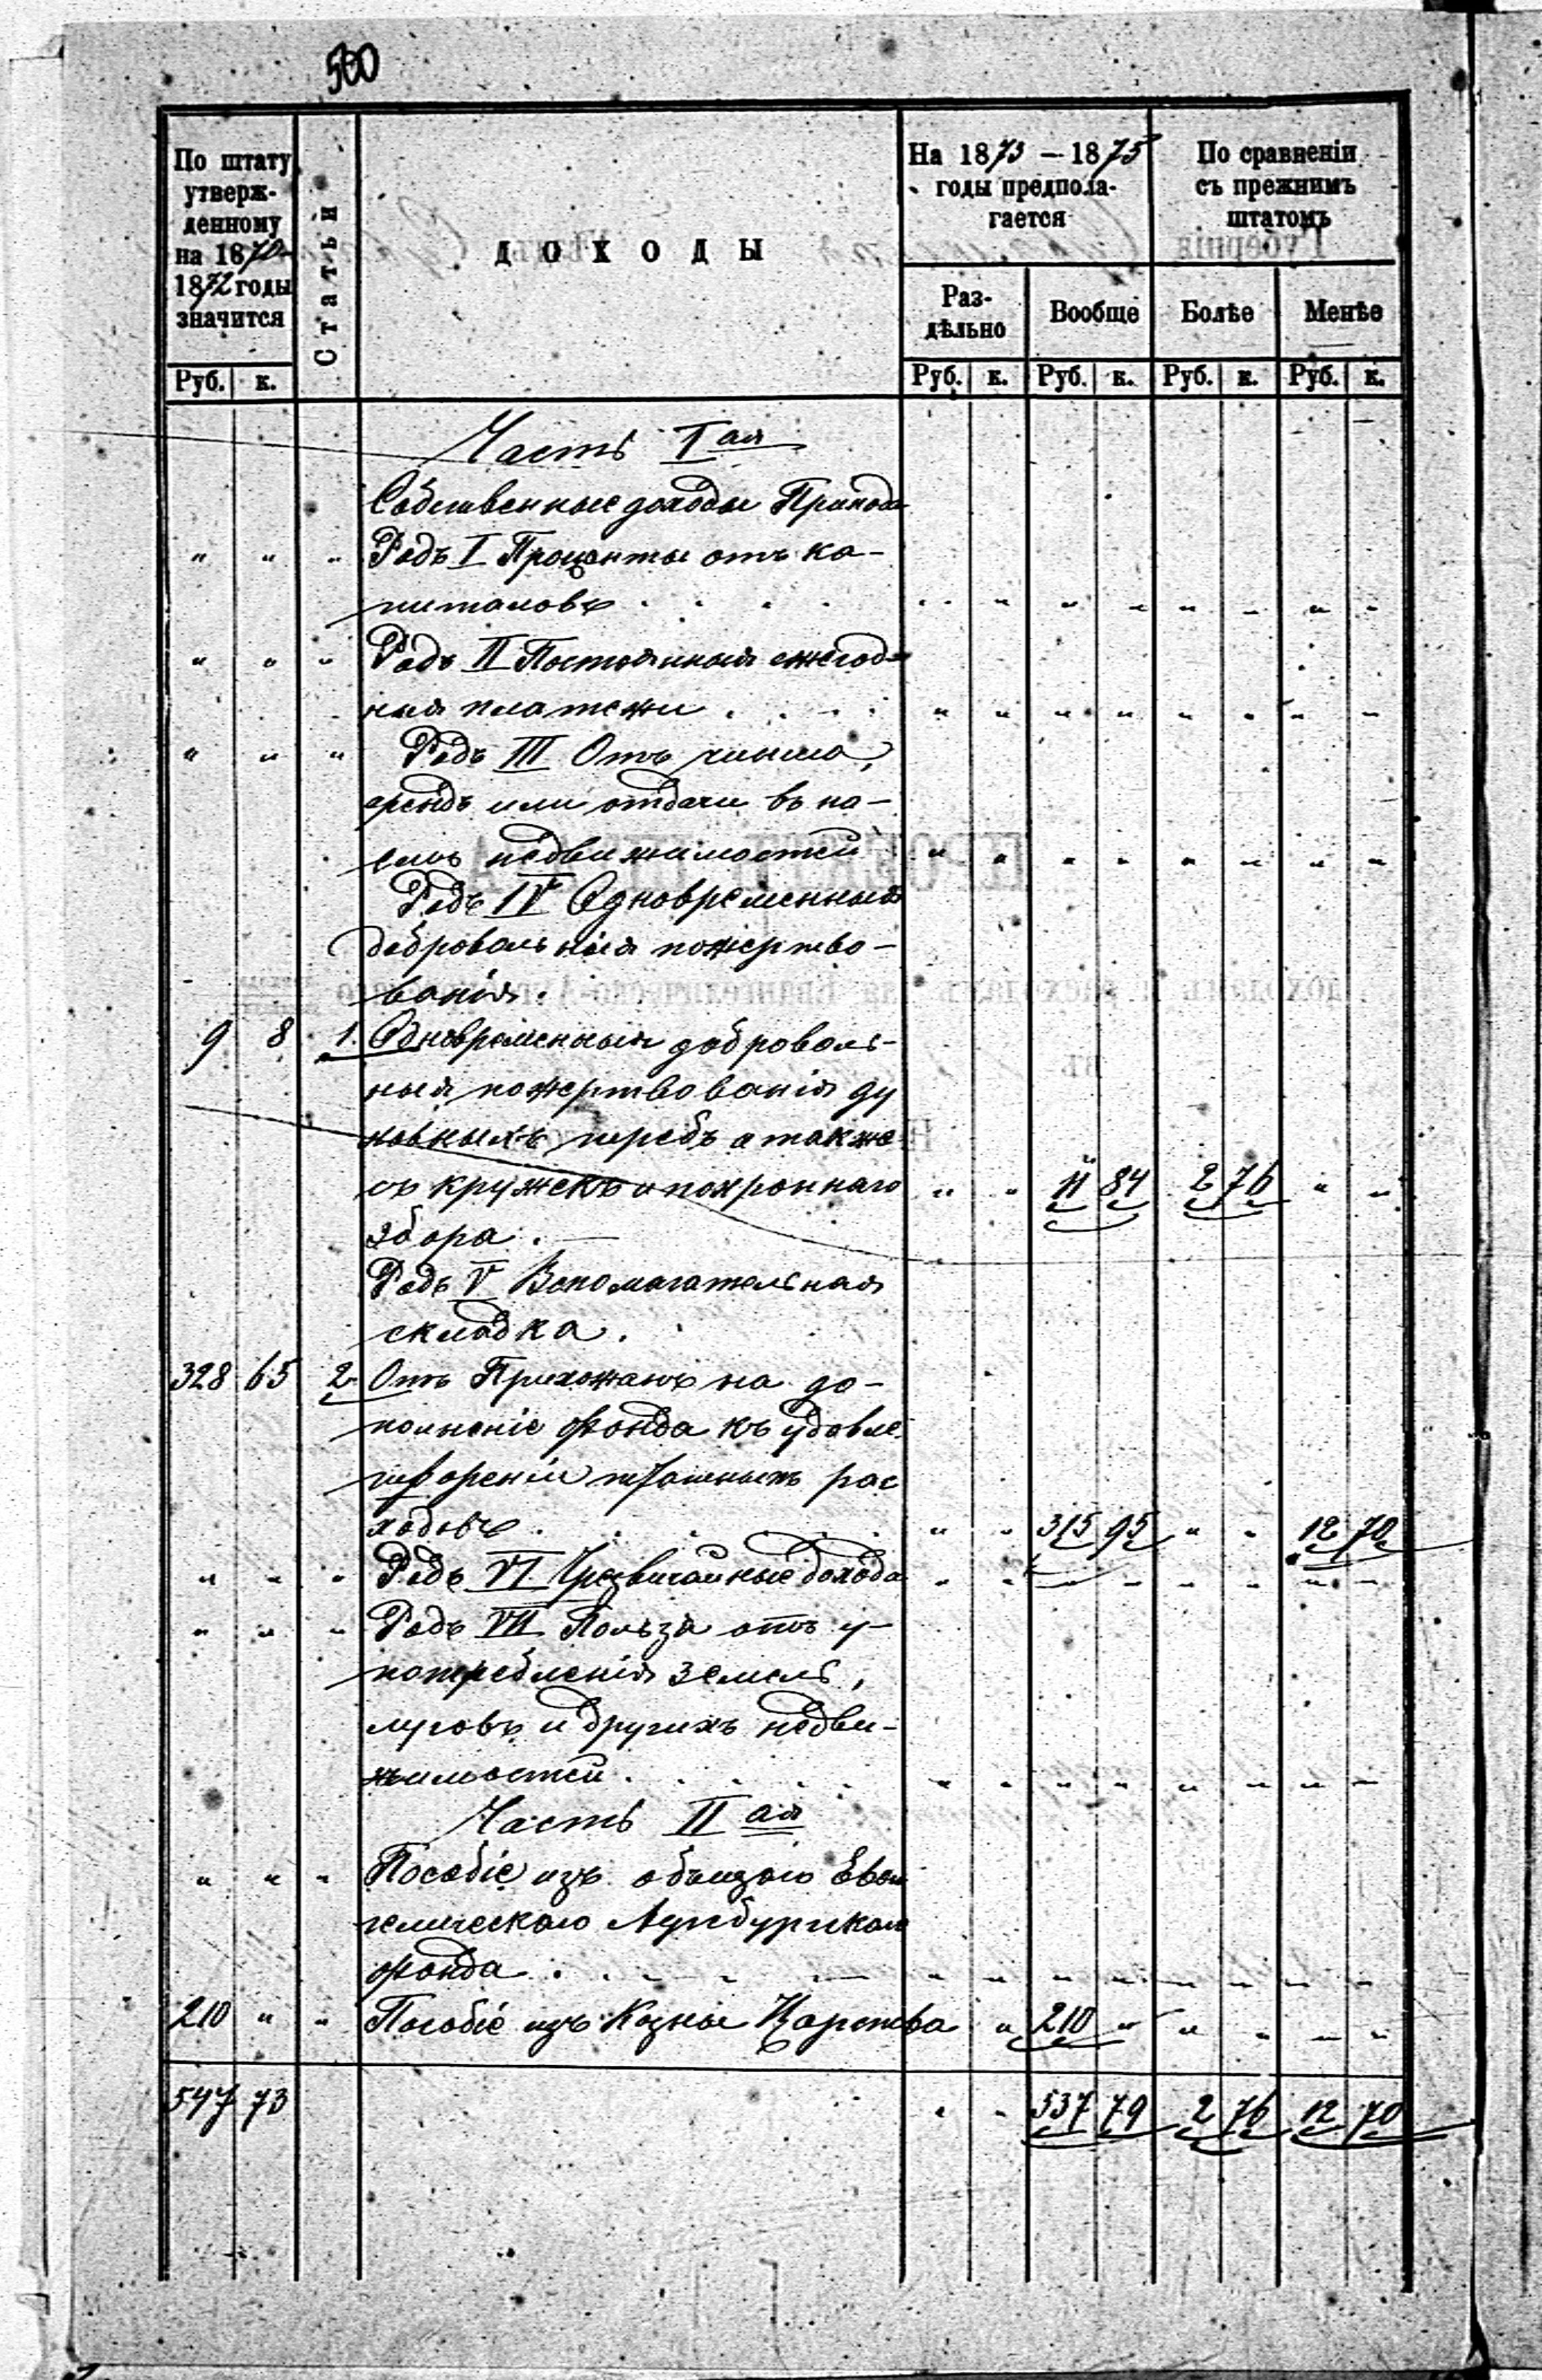 500
По штату утверж-денному на 1870-1872 годы значится
Статьи
ДОХОДЫ
На 1873 — 1875 годы предпола-гается
По сравненіи съ прежнимъ штатомъ
Раз-дѣльно
Вообще
Болѣе
Менѣе
Руб. к.
Руб. к. Руб. к. Руб. к. Руб. к.
Часть I ая
Собственные доходы Прихода
" " " Родъ I Проценты отъ ка-
питаловъ . . . . " " " " " " " "
" " " Родъ II Постоянныя ежегод-
ныя платежи . . . . " " " " " " " "
" " " Родъ III Отъ чинша,
арендъ или отдачи въ на-
емъ недвижимостей " " " " " " " "
Родъ IV Одновременныя
добровольныя пожертво-
ванія.
9 8 1. Одновременныя доброволь-
ныя пожертвованія ду
ховныхъ а также
съ кружекъ и похроннаго " " 11 84 2 76 " "
збора . —
Родъ V Вспомагательная
складка .
328 65 2. Отъ Прихожанъ на до-
полненіе фонда къ удовле
творенію штатныхъ рас
ходовъ . . . . " " 315 95 " " 12 70
" " " Родъ VI Чрезвычайные дохода " " " " " " " "
" " " Родъ VII Польза отъ у-
потребленія земель,
луговъ и другихъ недви-
жимостей . . . . . " " " " " " " "
Часть II ая
" " " Пособіе изъ общаго Еван
гелическаго Аугсбургскаго
фонда . . . . " " " " " " " "
210 " " Пособіе изъ Казны Царства " 210 " " " " "
547 73 " " 537 79 2 76 12 70